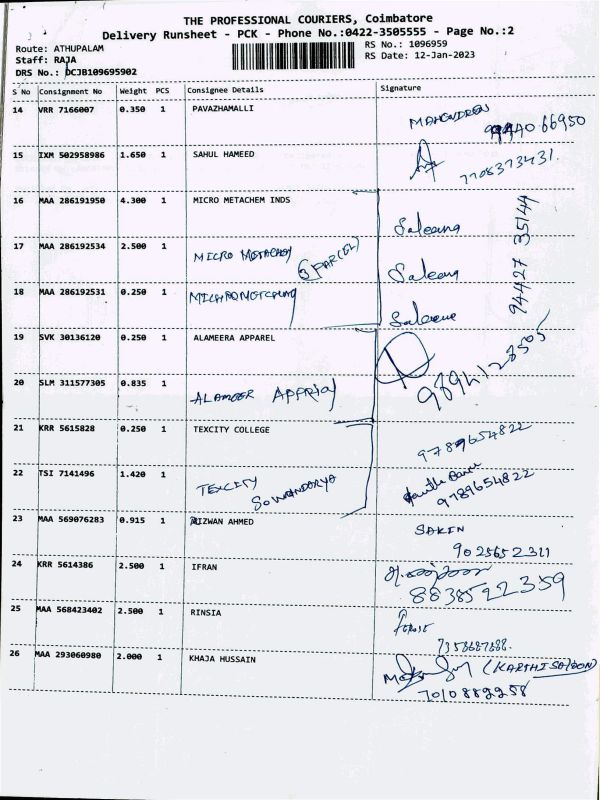 THE PROFESSIONAL COURIERS, Coimbatore
Delivery Runsheet - PCK - Phone No.:0422-3505555 - Page No.:2
Route: ATHUPALAM
RS No.: 1096959
Staff: RAJA
RS Date: 12-Jan-2023
DRS No.: DCJB109695902
S No Consignment No Weight PCS Consignee Details Signature
14 VRR 7166007 0.350 1 PAVAZHAMALLI MAHENDRAN
66950
15 IXM 502958986 1.650 1 SAHUL HAMEED
7708373431.
16 MAA 286191950 4.300 1 MICRO METACHEM INDS
94427 35144
17 MAA 286192534 2.500 1 MICRO
18 MAA 286192531 0.250 1
19 SVK 30136120 0.250 1 ALAMEERA APPAREL
20 SLM 311577305 0.835 1
21 KRR 5615828 0.250 1 TEXCITY COLLEGE 9789654822
22 TSI 7141496 1.420 1 TEXCITY
SOWANDARYA
9789654822
23 MAA 569076283 0.915 1 RIZWAN AHMED
9025652311
24 KRR 5614386 2.500 1 IFRAN
8838522359
25 MAA 568423402 2.500 1 RINSIA
26 MAA 293060980 2.000 1 KHAJA HUSSAIN (KARTHI SALOON)
7010882258